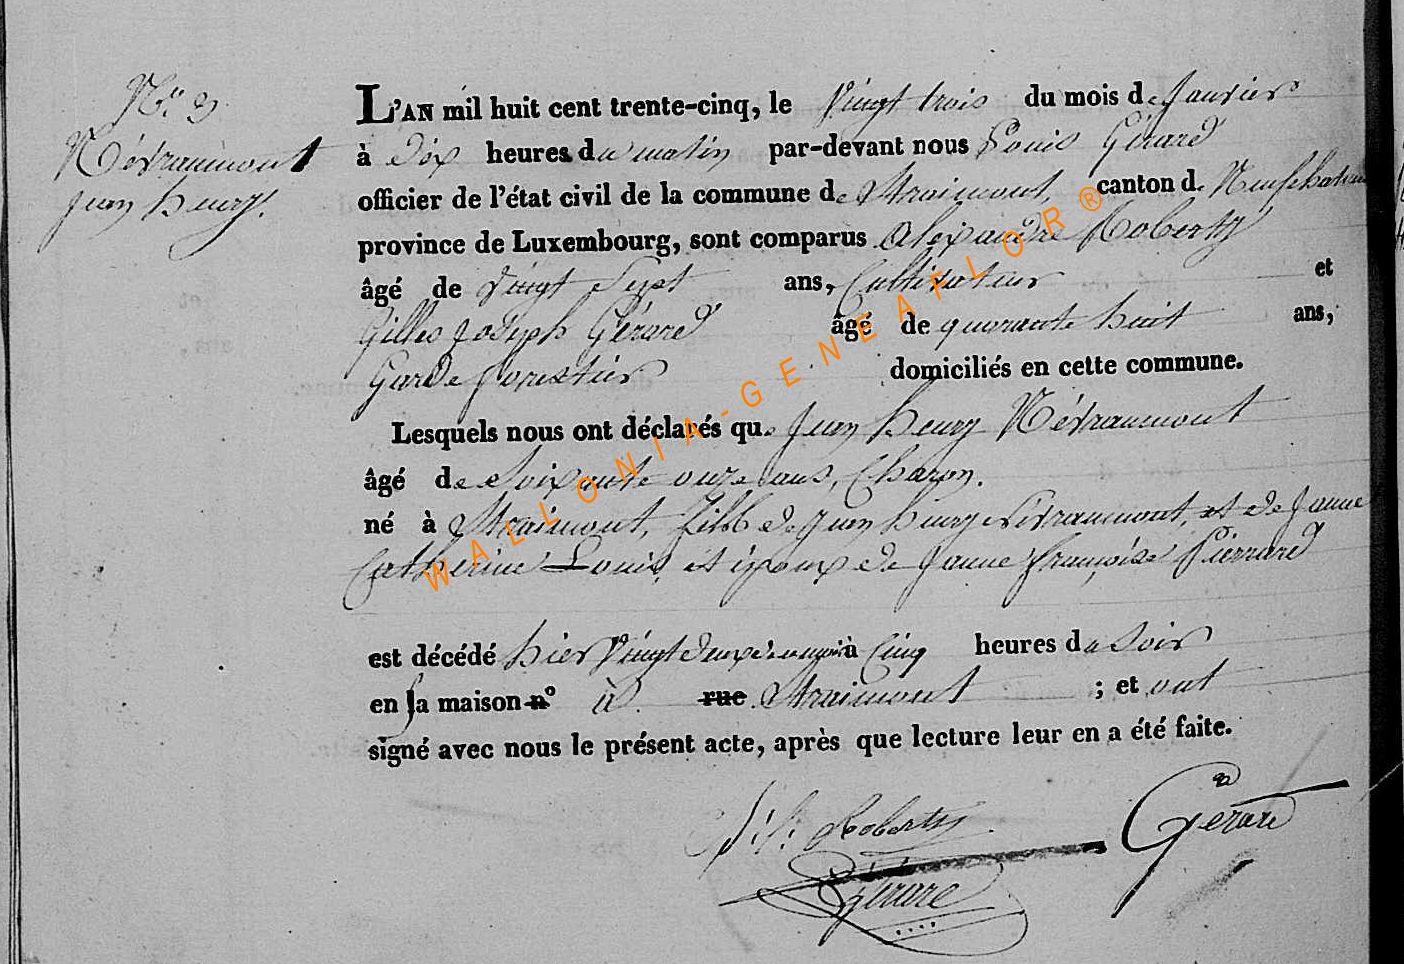 N° 3
Névraumont
Jean henry.
L'AN mil huit cent trente-cinq, le Vingt trois du mois de Janvier
à dix heures du matin par-devant nous Louis Gérard
officier de l'état civil de la commune de Straimont, canton de Neufchateau
province de Luxembourg, sont comparus Alexandre Roberty
âgé de Vingt Sept ans, Cultivateur et
Gilles Joseph Gérard âgé de quarante huit ans,
Garde forestier domiciliés en cette commune.
Lesquels nous ont déclarés que Jean henry Névraumont
âgé de Soixante onze ans, Charon.
né à Straimont, fils de Jean henry Névraumont, et de Jeanne
Catherine Louis, et époux de Jeanne françoise Pierrard
est décédé hier Vingt deux à Cinq heures du Soir
en sa maison n° à rue Straimont ; et ont
signé avec nous le présent acte, après que lecture leur en a été faite.
Roberty
Gérard
Gérard
WALLONIA-GENEAFLOR®